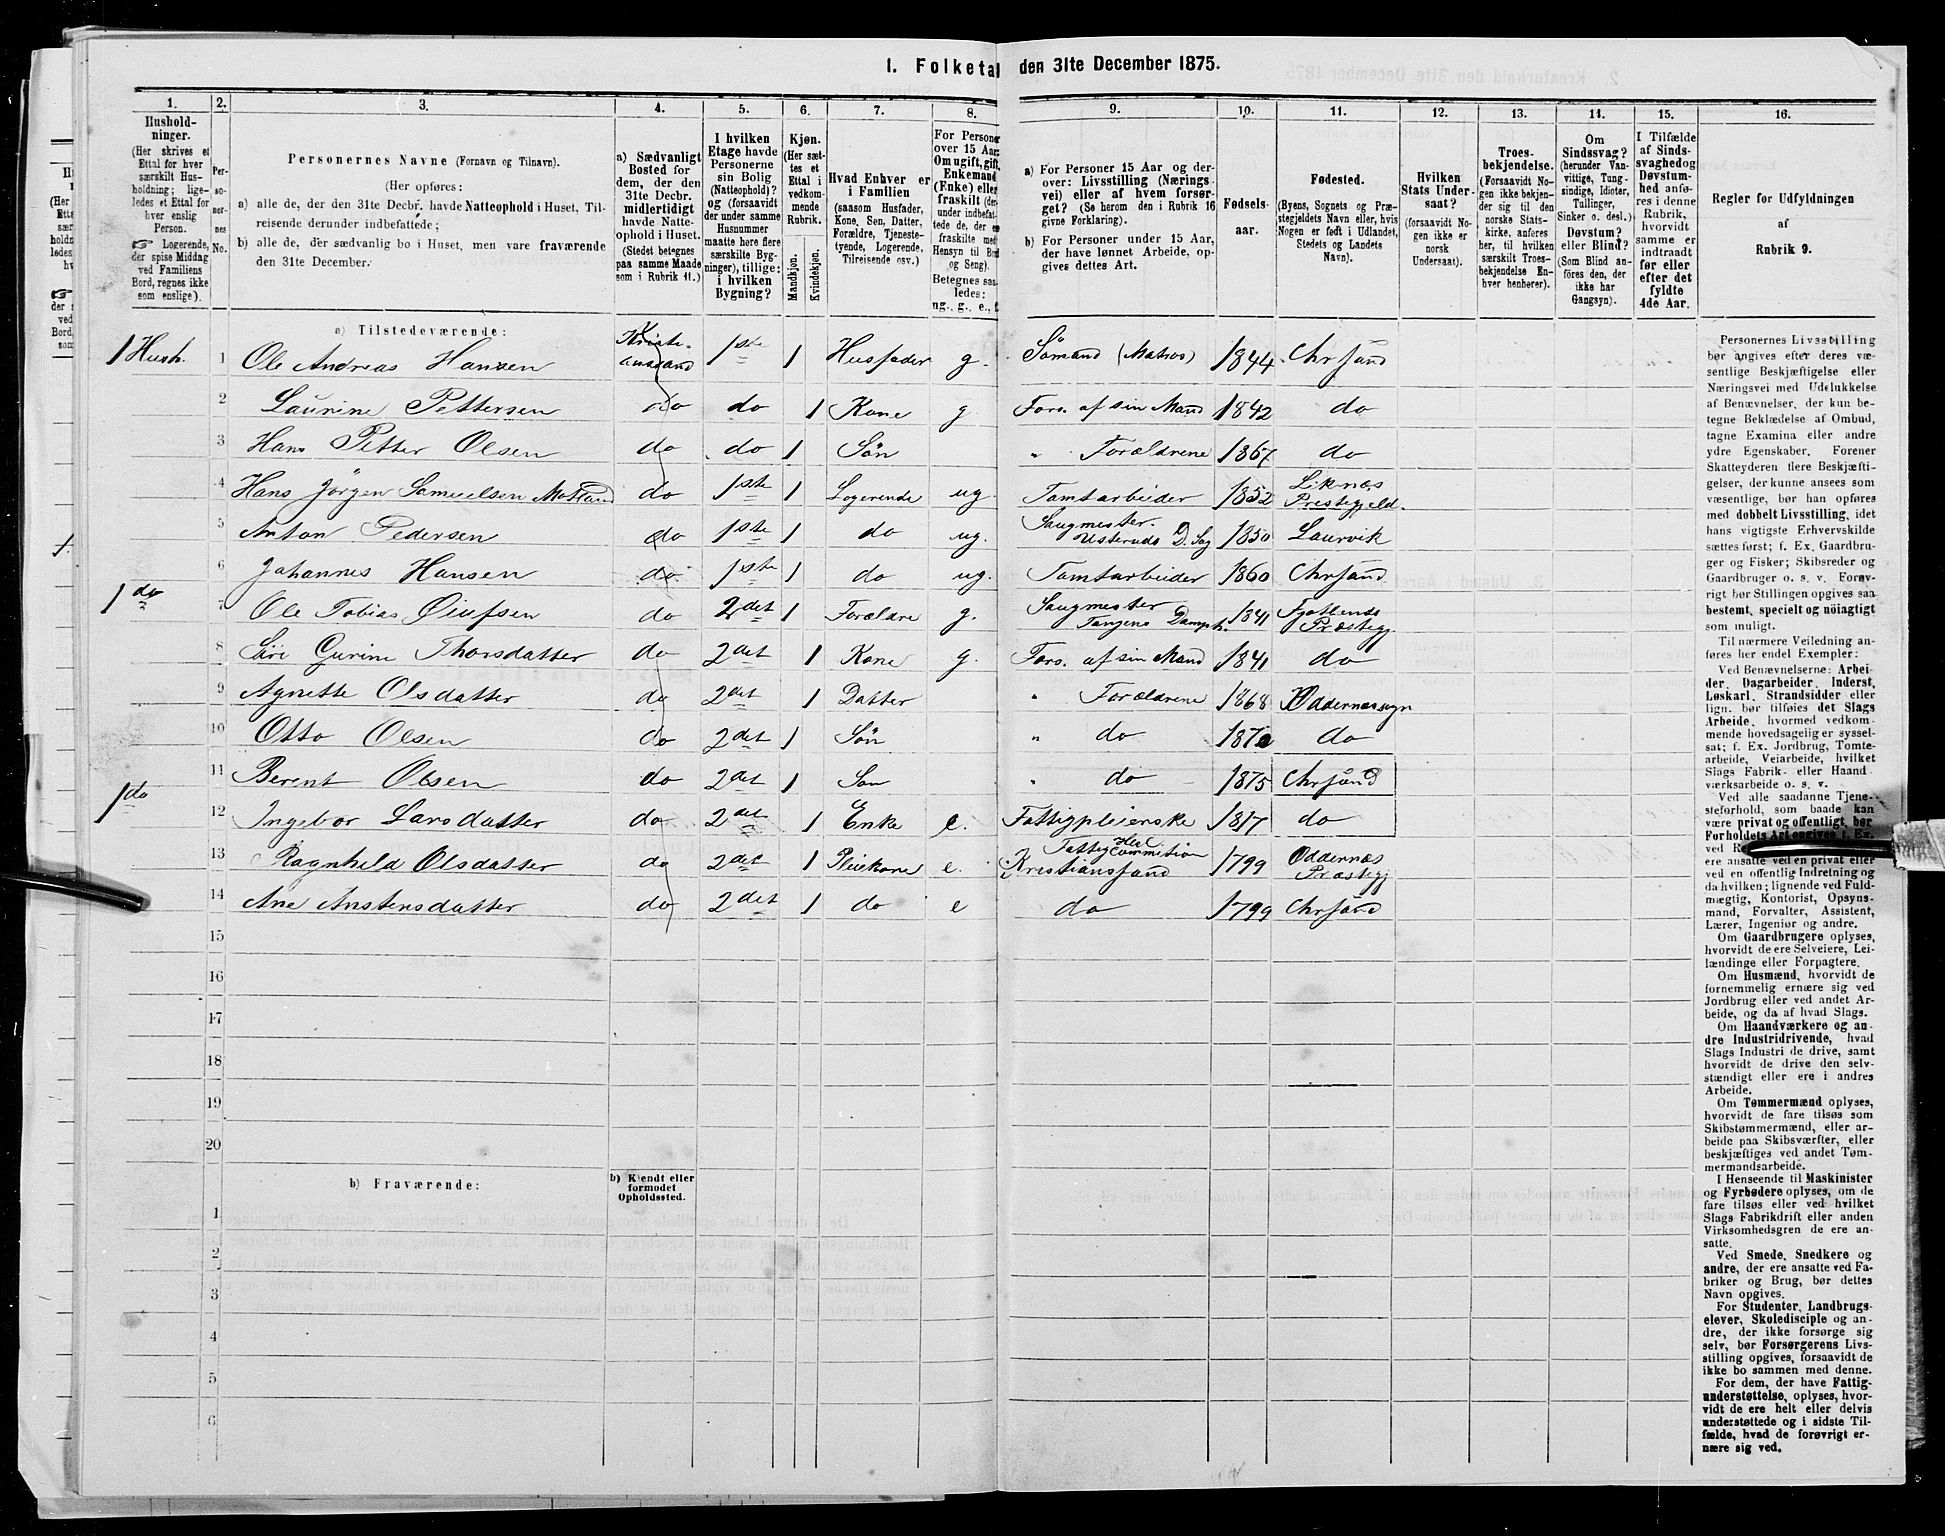 1. Folketal den 31te December 1875.
1. 2. 3. 4. 5. 6. 7. 8. 9. 10. 11. 12. 13. 14. 15. 16.
Hushold-
ninger.
(Her skrives et
Ettal for hver
særskilt Hus-
holdning; lige-
ledes et Ettal for
hver enslig
Person.
☞ Logerende,
der spise Middag
ved Familiens
Bord, regnes ikke
som enslige).
Per-
so-
ner-
nes
No.
Personernes Navne (Fornavn og Tilnavn).
(Her opføres:
a) alle de, der den 31te Decbr. havde Natteophold i Huset, Til-
reisende derunder indbefattede;
b) alle de, der sædvanlig bo i Huset, men vare fraværende
den 31te December.
a) Sædvanligt
Bosted for
dem, der den
31te Decbr.
midlertidigt
havde Natte-
ophold i Huset.
(Stedet betegnes
paa samme Maade
som i Rubrik 11.)
I hvilken
Etage havde
Personerne
sin Bolig
(Natteophold)?
og (forsaavidt
der under samme
Husnummer
maatte høre flere
særskilte Byg-
ninger), tillige:
i hvilken
Bygning?
Kjøn.
(Her sæt-
tes et
Ettal i
vedkom-
mende
Rubrik.
Mandkjøn.
Kvindekjøn.
Hvad Enhver er
i Familien
(saasom Husfader,
Kone, Søn, Datter,
Forældre, Tjeneste-
tyende, Logerende,
Tilreisende osv.)
For Personer
over 15 Aar:
Om ugift, gift,
Enkemand
(Enke) eller
fraskilt (der-
under indbefat-
tede de, der ere
fraskilte med
Hensyn til Bord
og Seng).
Betegnes saa-
ledes:
ug., g., e., f.
a) For Personer 15 Aar og der-
over: Livsstilling (Nærings-
vei) eller af hvem forsør-
get? (Se herom den i Rubrik 16
givne Forklaring).
b) For Personer under 15 Aar,
der have lønnet Arbeide, op-
gives dettes Art.
Fødsels-
aar.
Fødested.
(Byens, Sognets og Præ-
stegjeldets Navn eller, hvis
Nogen er født i Udlandet,
Stedets og Landets
Navn).
Hvilken
Stats Under-
saat?
(forsaavidt No-
gen ikke er
norsk
Undersaat).
Troes-
bekjendelse.
(Forsaavidt No-
gen ikke beken-
der sig til den
norske Stats-
kirke, anføres
her, til hvilken
særskilt Troes-
bekjendelse En-
hver henhører).
Om
Sindssvag?
(herunder Van-
vittige, Tung-
sindige, Idioter,
Tullinger,
Sinker o. desl.)
Døvstum?
eller Blind?
(Som Blind an-
føres den, der
ikke har
Gangsyn).
I Tilfælde
af Sinds-
svaghed og
Døvstum-
hed anfø-
res i denne
Rubrik,
hvorvidt
samme er
indtraadt
før eller
efter det
fyldte
4de Aar.
Regler for Udfyldningen
af
Rubrik 9.
a) Tilstedeværende:
1 Hush. 1 Ole Andreas Hansen Kristiansand 1ste 1 Husfader g. Sømand (Matros) 1844 Chrsand
2 Laurine Pettersen do do 1 Kone g Fors. af sin Mand 1842 do
3 Hans Petter Olsen do do 1 Søn " Forældrene 1867 do
4 Hans Jörgen Samuelsen do 1ste 1 Logerende ug. Tomtarbeider 1852 Liknæs Prestegjeld.
5 Anton Pedersen do 1ste 1 do ug. Saugmester. Usteruds D. Sag 1850 Laurvik
6 Johannes Hansen do 1ste 1 do ug. Tomtarbeider 1860 Chrsand
1 do 7 Ole Tobias do 2det 1 Forældre g. Saugmester Tangens Damph. 1841 Præstegj.
8 Siri Gurine Thorsdatter do 2det 1 Kone g. Fors. af sin Mand 1841 do
9 Agnette Olsdatter do 2det 1 Datter " Forældrene 1868 Oddernessogn
10 Otto Olsen do 2det 1 Søn " do do
11 Berent Olsen do 2det 1 Søn " do 1875 Chrsand
1 do 12 Ingebor Larsdatter do 2det 1 Enke e. Fattigpleierske 1817 do
13 Ragnhild Olsdatter do 2det 1 Pleiekone e. Kristiansand Fattigcommition 1799 Oddernæs Præstegj
14 Ane Anstensdatter do 2det 1 do e do 1799 Chrsand
15
16
17
18
19
20
b) Fraværende:
b) Kjendt eller
formodet
Opholdssted.
1
2
3
4
5
6
Personernes Livsstilling
bør angives efter deres væ-
sentlige Beskjæftigelse eller
Næringsvei med Udelukkelse
af Benævnelser, der kun be-
tegne Beklædelse af Ombud,
tagne Examina eller andre
ydre Egenskaber. Forener
Skatteyderen flere Beskjæfti-
gelser, der kunne ansees som
væsentlige, bør han opføres
med dobbelt Livsstilling, idet
hans vigtigste Erhvervskilde
sættes først; f. Ex. Gaardbru-
ger og Fisker; Skibsreder og
Gaardbruger o. s. v. Forøv-
rigt bør Stillingen opgives saa
bestemt, specielt og nöiagtigt
som muligt.
Til nærmere Veiledning an-
føres her endel Exempler:
Ved Benævnelserne: Arbei-
der, Dagarbeider, Inderst,
Løskarl, Strandsidder eller
lign. bør tilføies det Slags
Arbeide, hvormed vedkom-
mende hovedsagelig er syssel-
sat; f. Ex. Jordbrug, Tomte-
arbeide, Veiarbeide, hvilket
Slags Fabrik- eller Haand-
værksarbeide o. s. v.
Ved alle saadanne Tjene-
steforhold, som baade kan
være privat og offentligt, bør
Forholdets Art opgives f. Ex.
ere ansatte ved en privat eller
ved en offentlig Indretning og
da hvilken; lignende ved Fuld-
mægtig, Kontorist, Opsyns-
mand, Forvalter, Assistent,
Lærer, Ingeniør og andre.
Om Gaardbrugere oplyses,
hvorvidt de ere Selveiere, Lei-
lændinge eller Forpagtere.
Om Husmænd, hvorvidt de
fornemmelig ernære sig ved
Jordbrug eller ved andet Ar-
beide, og da af hvad Slags.
Om Haandværkere og an-
dre Industridrivende, hvad
Slags Industri de drive, samt
hvorvidt de drive den selv-
stændigt eller ere i andres
Arbeide.
Om Tømmermænd oplyses,
hvorvidt de fare tilsøs som
Skibstømmermænd, eller ar-
beide paa Skibsværfter, eller
beskjæftiges ved andet Tøm-
mermandsarbeide.
I Henseende til Maskinister
og Fyrbødere oplyses, om de
fare tilsøs eller ved hvilket
Slags Fabrikdrift eller anden
Virksomhedsgren de ere an-
satte.
Ved Smede, Snedkere og
andre, der ere ansatte ved Fa-
briker og Brug, bør dettes
Navn opgives.
For Studenter, Landbrugs-
elever, Skoledisciple og an-
dre, der ikke forsørge sig
selv, bør Forsørgerens Livs-
stilling opgives, forsaavidt de
ikke bo sammen med denne.
For dem, der have Fattig-
understøttelse, oplyses, hvor-
vidt de ere helt eller delvis
understøttede og i sidste Til-
fælde, hvad de forøvrigt er-
nære sig ved.